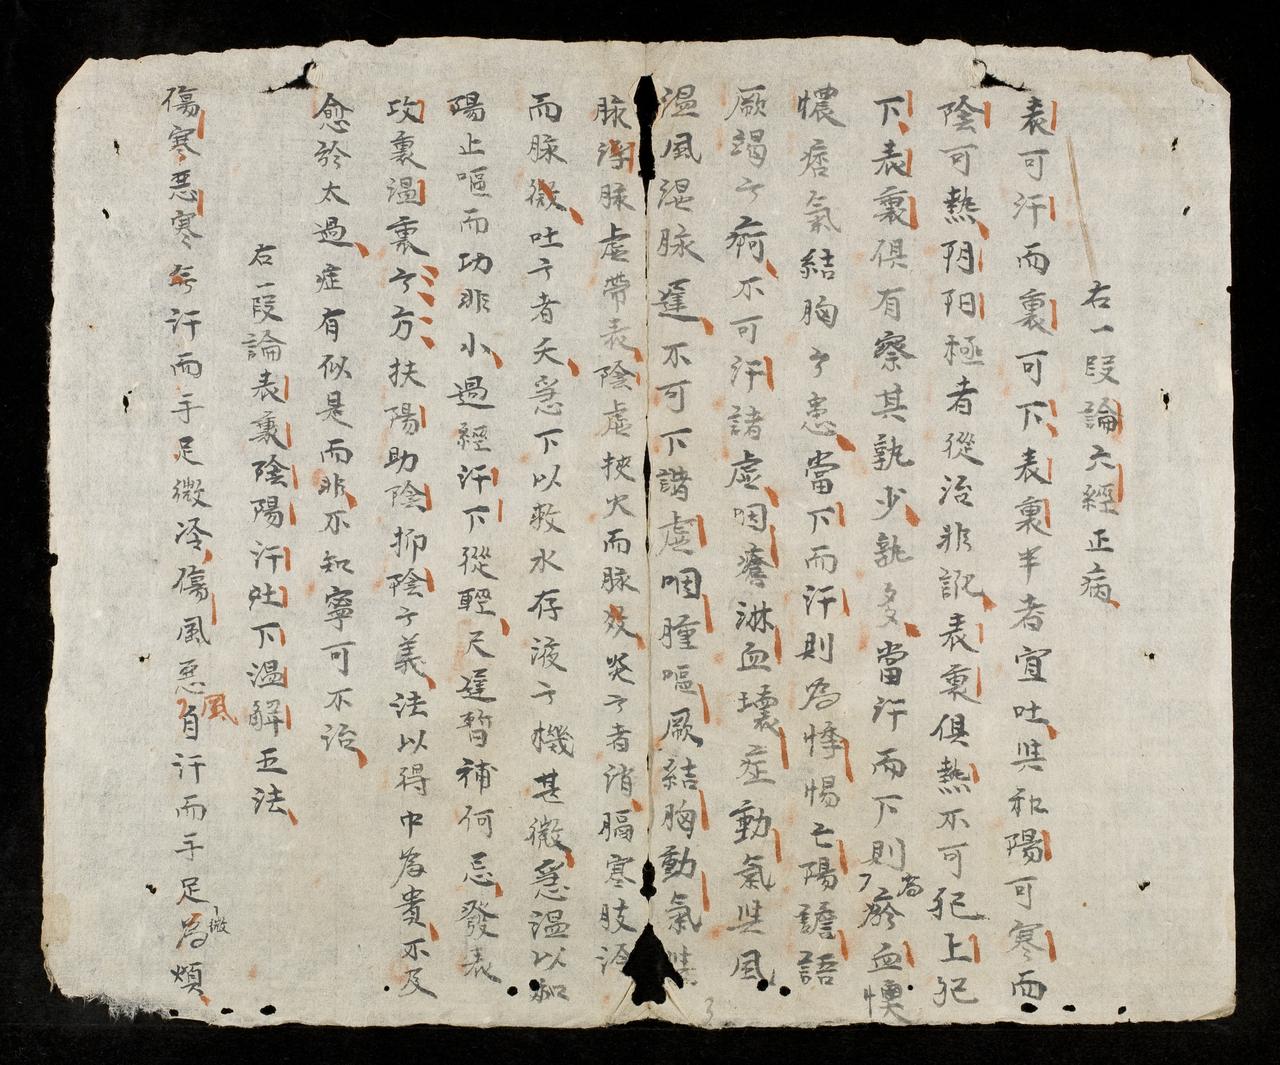 右一段論六經正病
表可汗而裏可下表裏半者宜吐与和陽可寒而
陰可熱阴阳極者從治非訛表裏俱熱不可犯上犯
下表裏俱有察其孰少孰多當汗而下則為瘀血懊
憹痞氣結胸亇患當下而汗則為悸惕亡陽譫語
厥竭亇痾不可汗諸虛咽瘡淋血壞症動氣与風
温風湿脉遲不可下諸虛咽腫嘔厥結胸動氣与
脉浮脉虛帶表陰虛挾火而脉炎亇者消膈寒肢冷
而脉微吐亇者夭急下以救水存液亇機甚微急温以和
陽止嘔而功非小過經汗下從輕尺遲暂補何忌發表
攻裏温裏亇方扶陽助陰抑陰亇義法以得中為貴不及
愈於太過症有似是而非不知寧可不治
右一段論表裏陰陽汗吐下温解五法
傷寒惡寒無汗而手足微冷傷風惡風自汗而手足微為煩